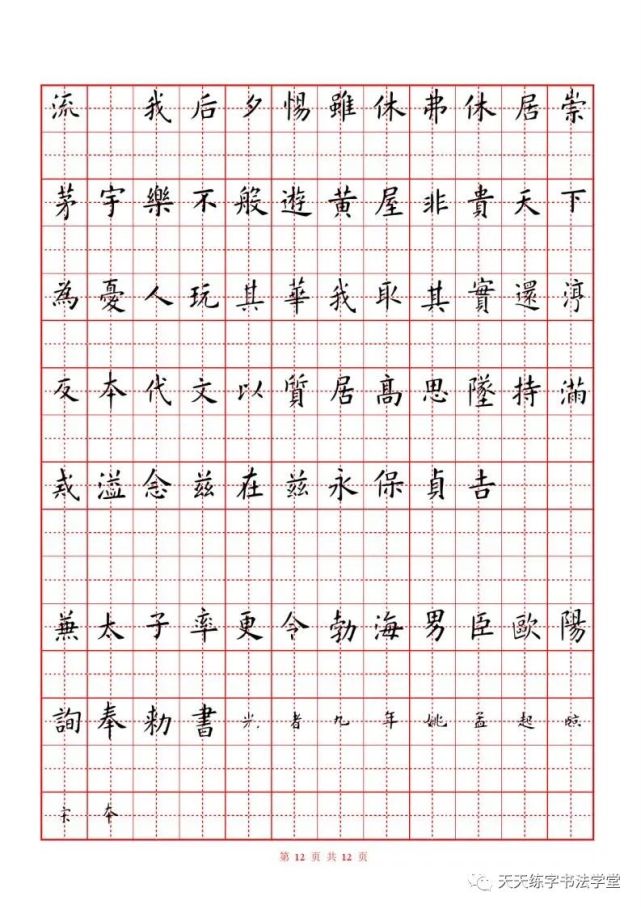 流 我后夕惕雖休弗休居崇
茅宇樂不般遊黃屋非貴天下
為憂人玩其華我取其實還淳
反本代文以質居高思墜持滿
戒溢念茲在茲永保貞吉
兼太子率更令勃海男臣歐陽
詢奉勅書光九年姚孟起臨
宋本
第 12 页 共 12 页
天天练字书法学堂